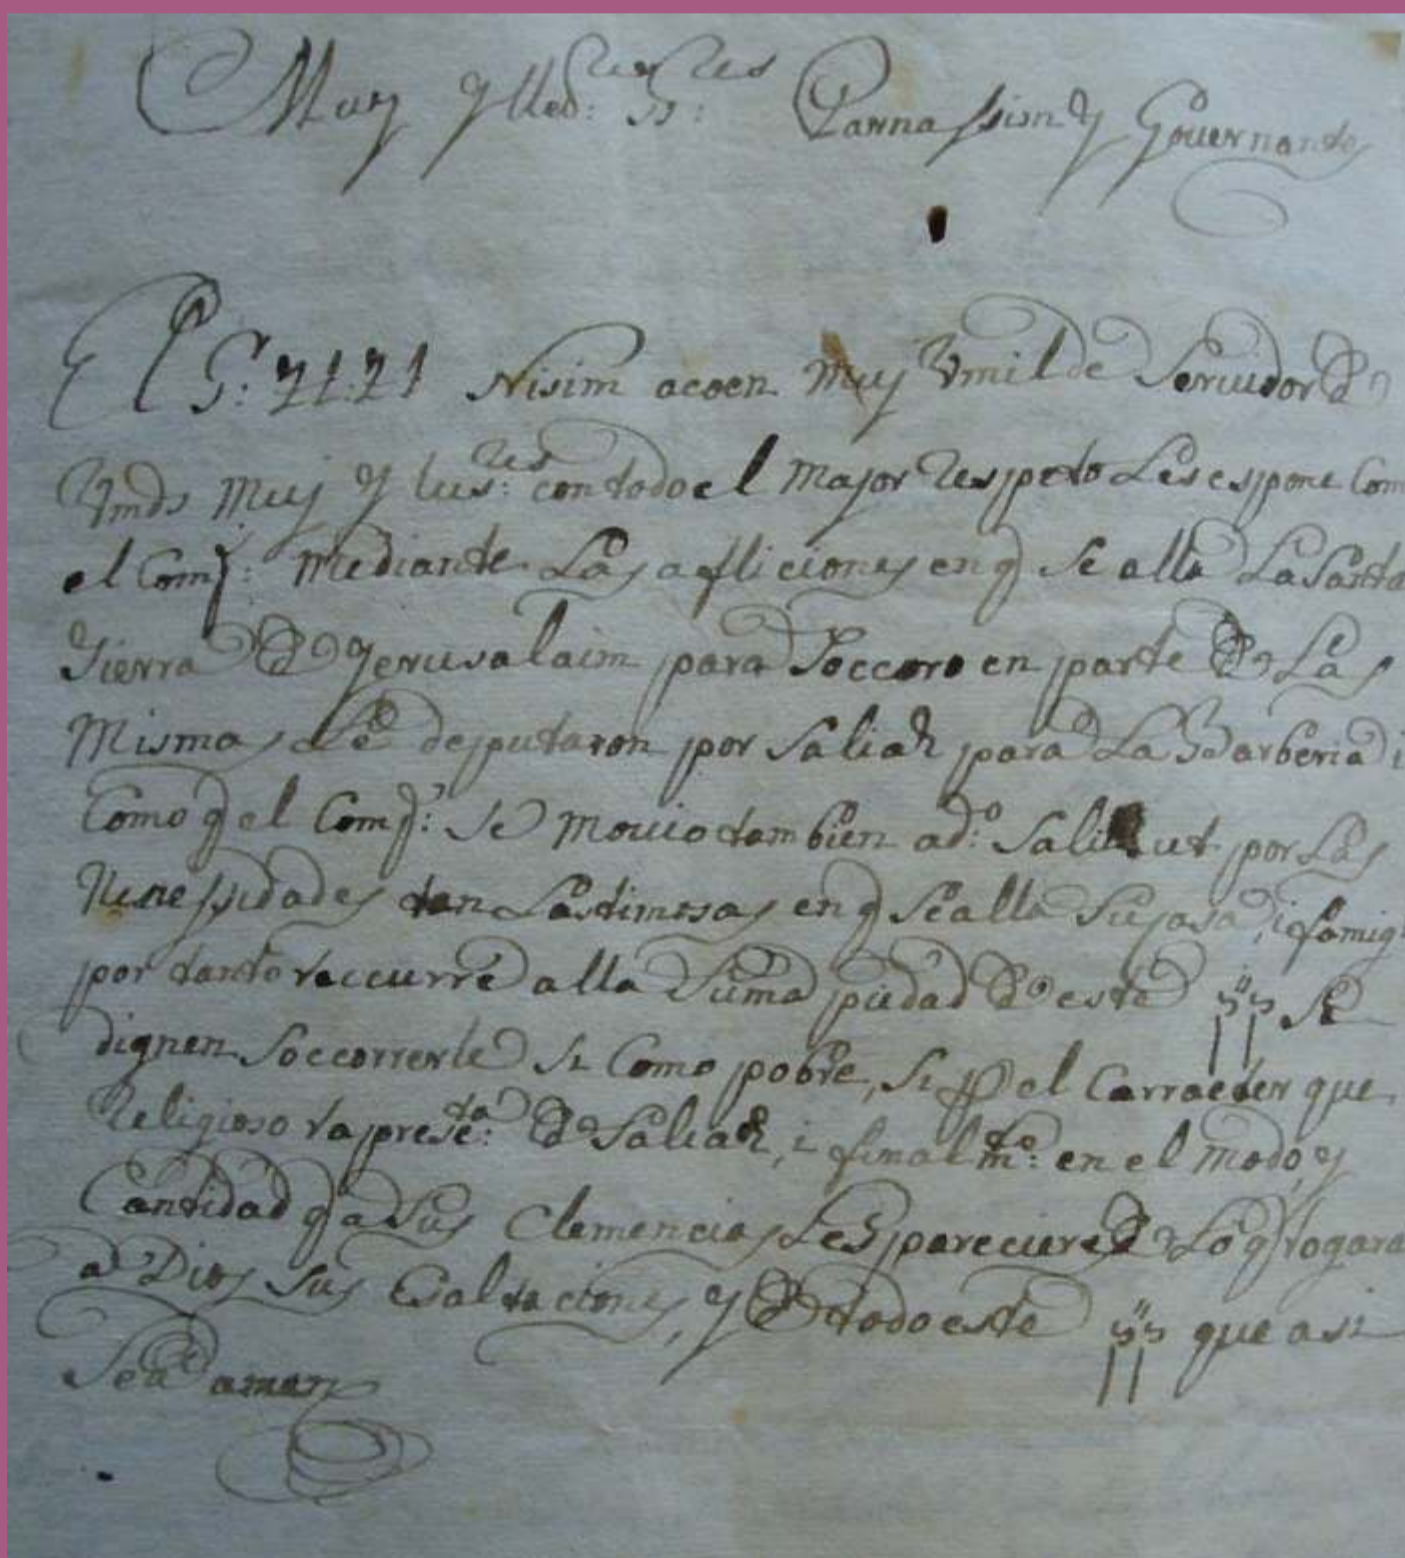 Muy Ylles: SS:res Parnassim y Gouernantes
El S: Nisim acoen muy Vmilde Seruidor de
Vmds muy Ylus:res con todo el major respeto Les espone Com
el Comp: mediante Las afliciones en q Se alla La Santa
Tierra de Yerusalaim para Soccoro en parte de Las
Mismas Le deputaron por Saliah para La Barberia i
Como q el Comp: Se mouio tambien ad:o Salihut por Las
Nenessidades tan Lastimosas en q Se alla Su casa, i famig
por tanto raccurre alla Suma piedad de este קק Se
dignen Soccorrerle Si Como pobre, Si p el Carracter que
Religioso rapresta: de Saliah, i finalmte: en el modo, y
Cantidad q a Sus Clemencias Les pareciere de Lo q rogara
a Dios Sus Esaltaciones, y de todo este קק que asi
Sea amen